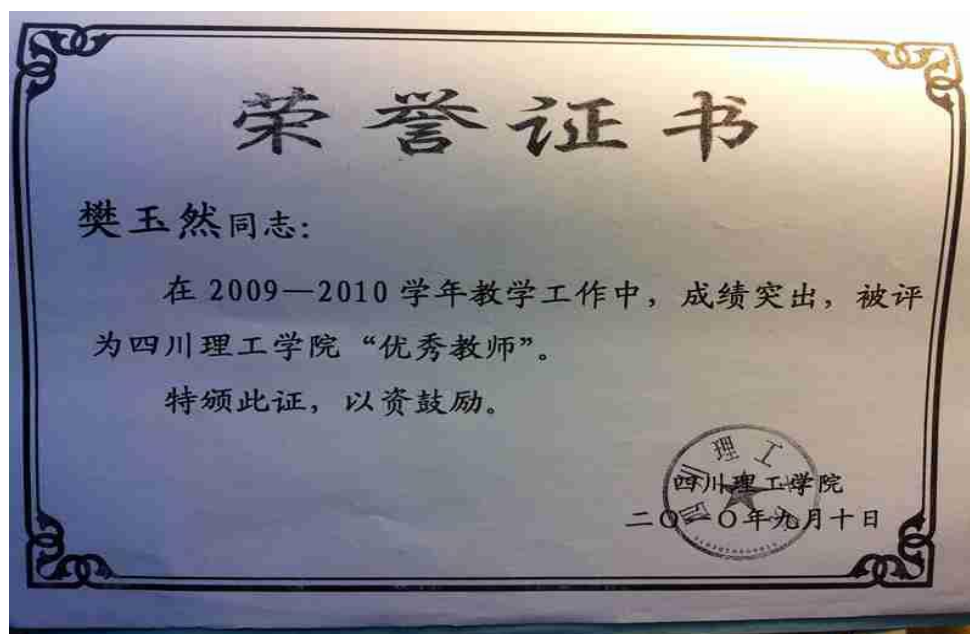 荣誉证书
樊玉然同志：
在 2009—2010 学年教学工作中，成绩突出，被评
为四川理工学院“优秀教师”。
特颁此证，以资鼓励。
四川理工学院
二〇一〇年九月十日